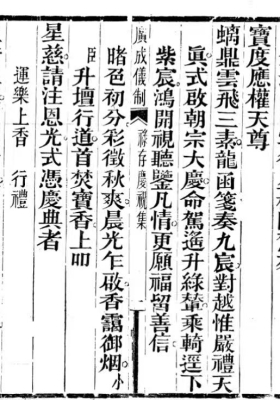 寶度應權天尊
螭鼎雲飛三素龍函箋奏九宸對越惟嚴禮天
眞式啟朝宗大慶命駕遙升綠輦乘輢逕下
紫宸鴻開視聽鑒凡情更願福留善信
廣成儀制 祥存慶祝集
曙色初分彩徵秋爽晨光乍啟香靄御烟小
臣升壇行道首焚寶香上叩
星慈請注恩光式憑慶典者
運樂上香 行禮